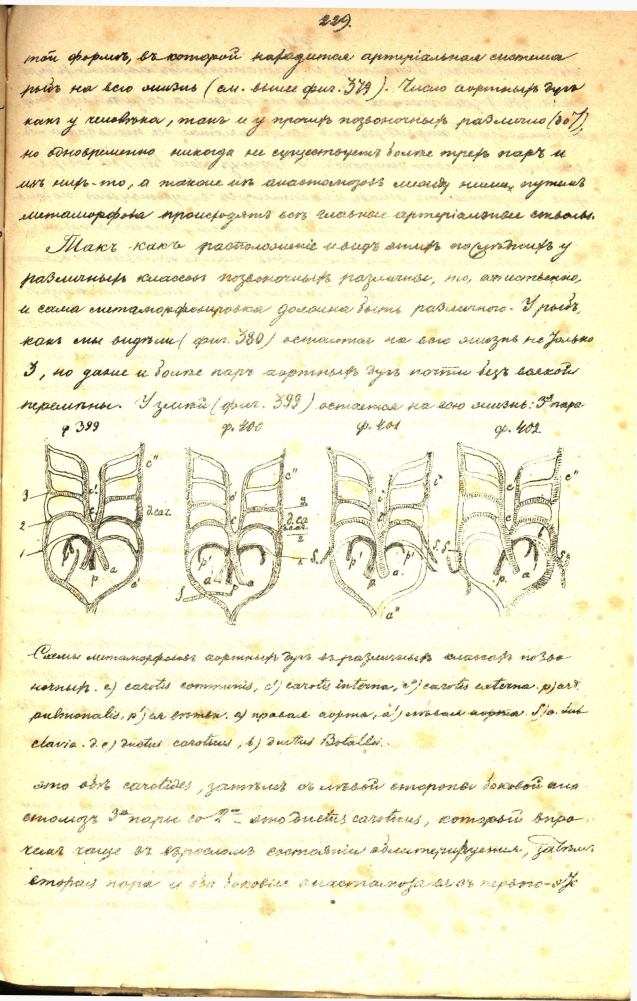 229.
той формѣ, въ которой находится артеріальная система
рыбъ на всю жизнь (см. выше фиг. 379). Число аортныхъ дугъ
какъ у человѣка, такъ и у прочихъ позвоночныхъ различно (до 7),
но одновременно никогда не существуетъ болѣе трехъ паръ и
изъ нихъ-то, а также изъ анастомозовъ между ними, путемъ
метаморфоза происходятъ всѣ главные артеріальные стволы.
Такъ какъ расположеніе и видъ этихъ послѣднихъ у
различныхъ классовъ позвоночныхъ различны, то, естественно,
и сама метаморфозировка должна быть различною. У рыбъ,
какъ мы видѣли (фиг. 380) остается на всю жизнь не только
3, но даже и болѣе паръ аортныхъ дугъ почти безъ всякой
перемѣны. У змѣй (фиг. 399) остается на всю жизнь: 3я пара
ф 399 ф. 400 ф. 401 ф. 402
c'' c'' c''
3 c'
2 c d.car.
1 p a a'
Схемы метаморфозовъ аортныхъ дугъ въ различныхъ классахъ позво-
ночныхъ. c) carotis communis, c') carotis interna, c'') carotis externa. p) art.
pulmonalis, a) правая аорта, a') лѣвая аорта. S) a. sub
clavia. d.c) ductus caroticus, b) ductus Botalli.
это обѣ carotides, затѣмъ съ лѣвой стороны боковой ана-
стомозъ 3й пары со 2ой это ductus caroticus, который впро-
чемъ чаще въ взросломъ состояніи облитерируется, затѣмъ
вторая пара и оба боковые анастомоза ея съ первою